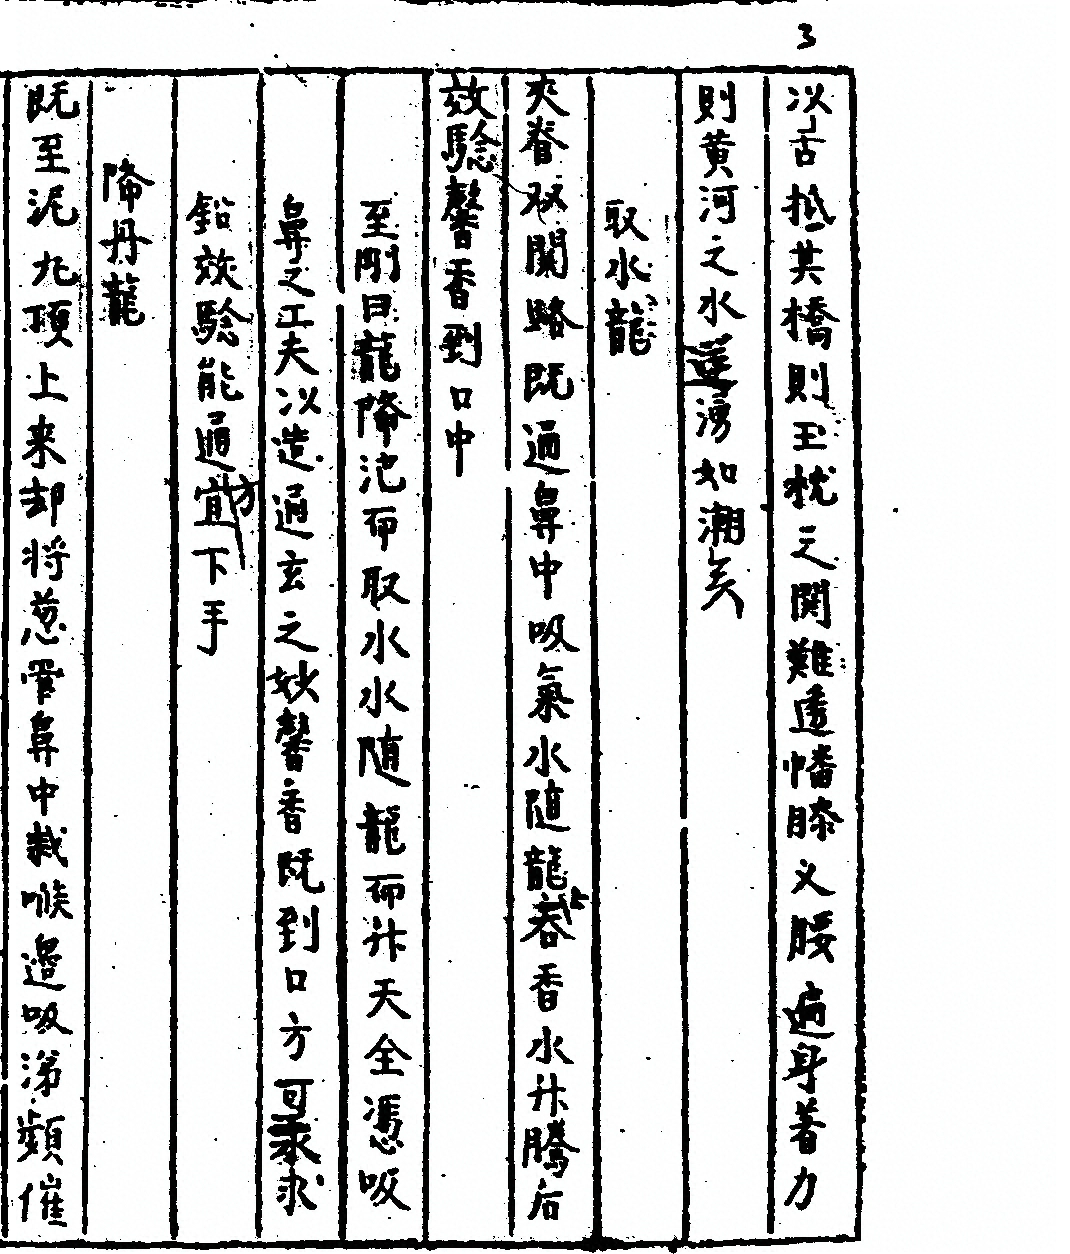 3
以舌抵其橋則玉枕之関難透幡膝义腰遍身著力
則黄河之水湧如潮矣
取水龍
夾脊双関路既過鼻中吸氣水随龍香水升騰后
效驗馨香到口中
至剛日龍降池而取水水随龍而升天全憑吸
鼻之工夫以造通玄之妙馨香既到口方可求
鉛效驗能通方宜下手
降丹龍
既至泥丸項上来却将葱管鼻中栽喉邉吸涕頻催